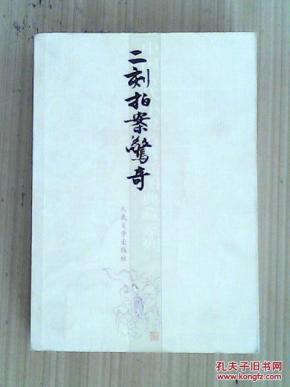 二刻拍案驚奇
人民文学出版社
孔夫子旧书网